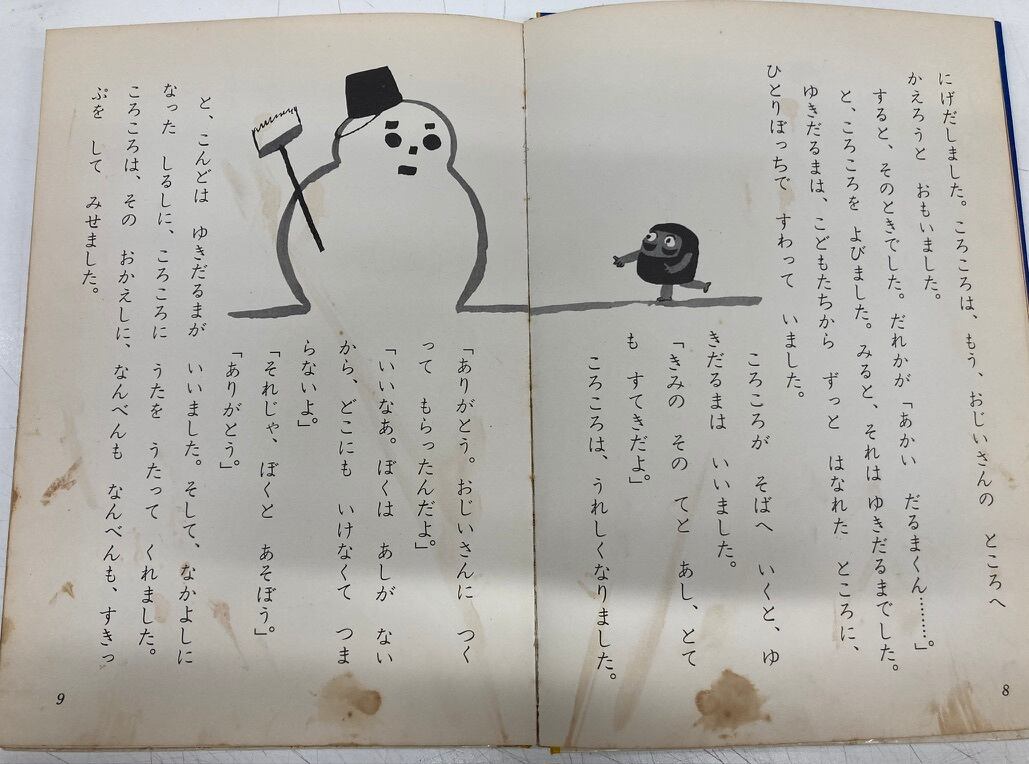 にげだしました。ころころは、もう、おじいさんの　ところへ
かえろうと　おもいました。
すると、そのときでした。だれかが「あかい　だるまくん………。」
と、ころころを　よびました。みると、それは　ゆきだるまでした。
ゆきだるまは、こどもたちから　ずっと　はなれた　ところに、
ひとりぼっちで　すわって　いました。
ころころが　そばへ　いくと、ゆ
きだるまは　いいました。
「きみの　その　てと　あし、とて
も　すてきだよ。」
ころころは、うれしくなりました。
8
「ありがとう。おじいさんに　つく
って　もらったんだよ。」
「いいなあ。ぼくは　あしが　ない
から、どこにも　いけなくて　つま
らないよ。」
「それじゃ、ぼくと　あそぼう。」
「ありがとう。」
と、こんどは　ゆきだるまが　いいました。そして、なかよしに
なった　しるしに、ころころに　うたを　うたって　くれました。
ころころは、その　おかえしに、なんべんも　なんべんも、すきっ
ぷを　して　みせました。
9